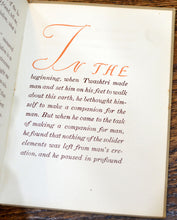 IN THE
beginning, when Twashtri made
man and set him on his feet to walk
about this earth, he bethought him-
self to make a companion for the
man. But when he came to the task
of making a companion for man,
he found that nothing of the solider
elements was left from man's cre-
ation, and he paused in profound